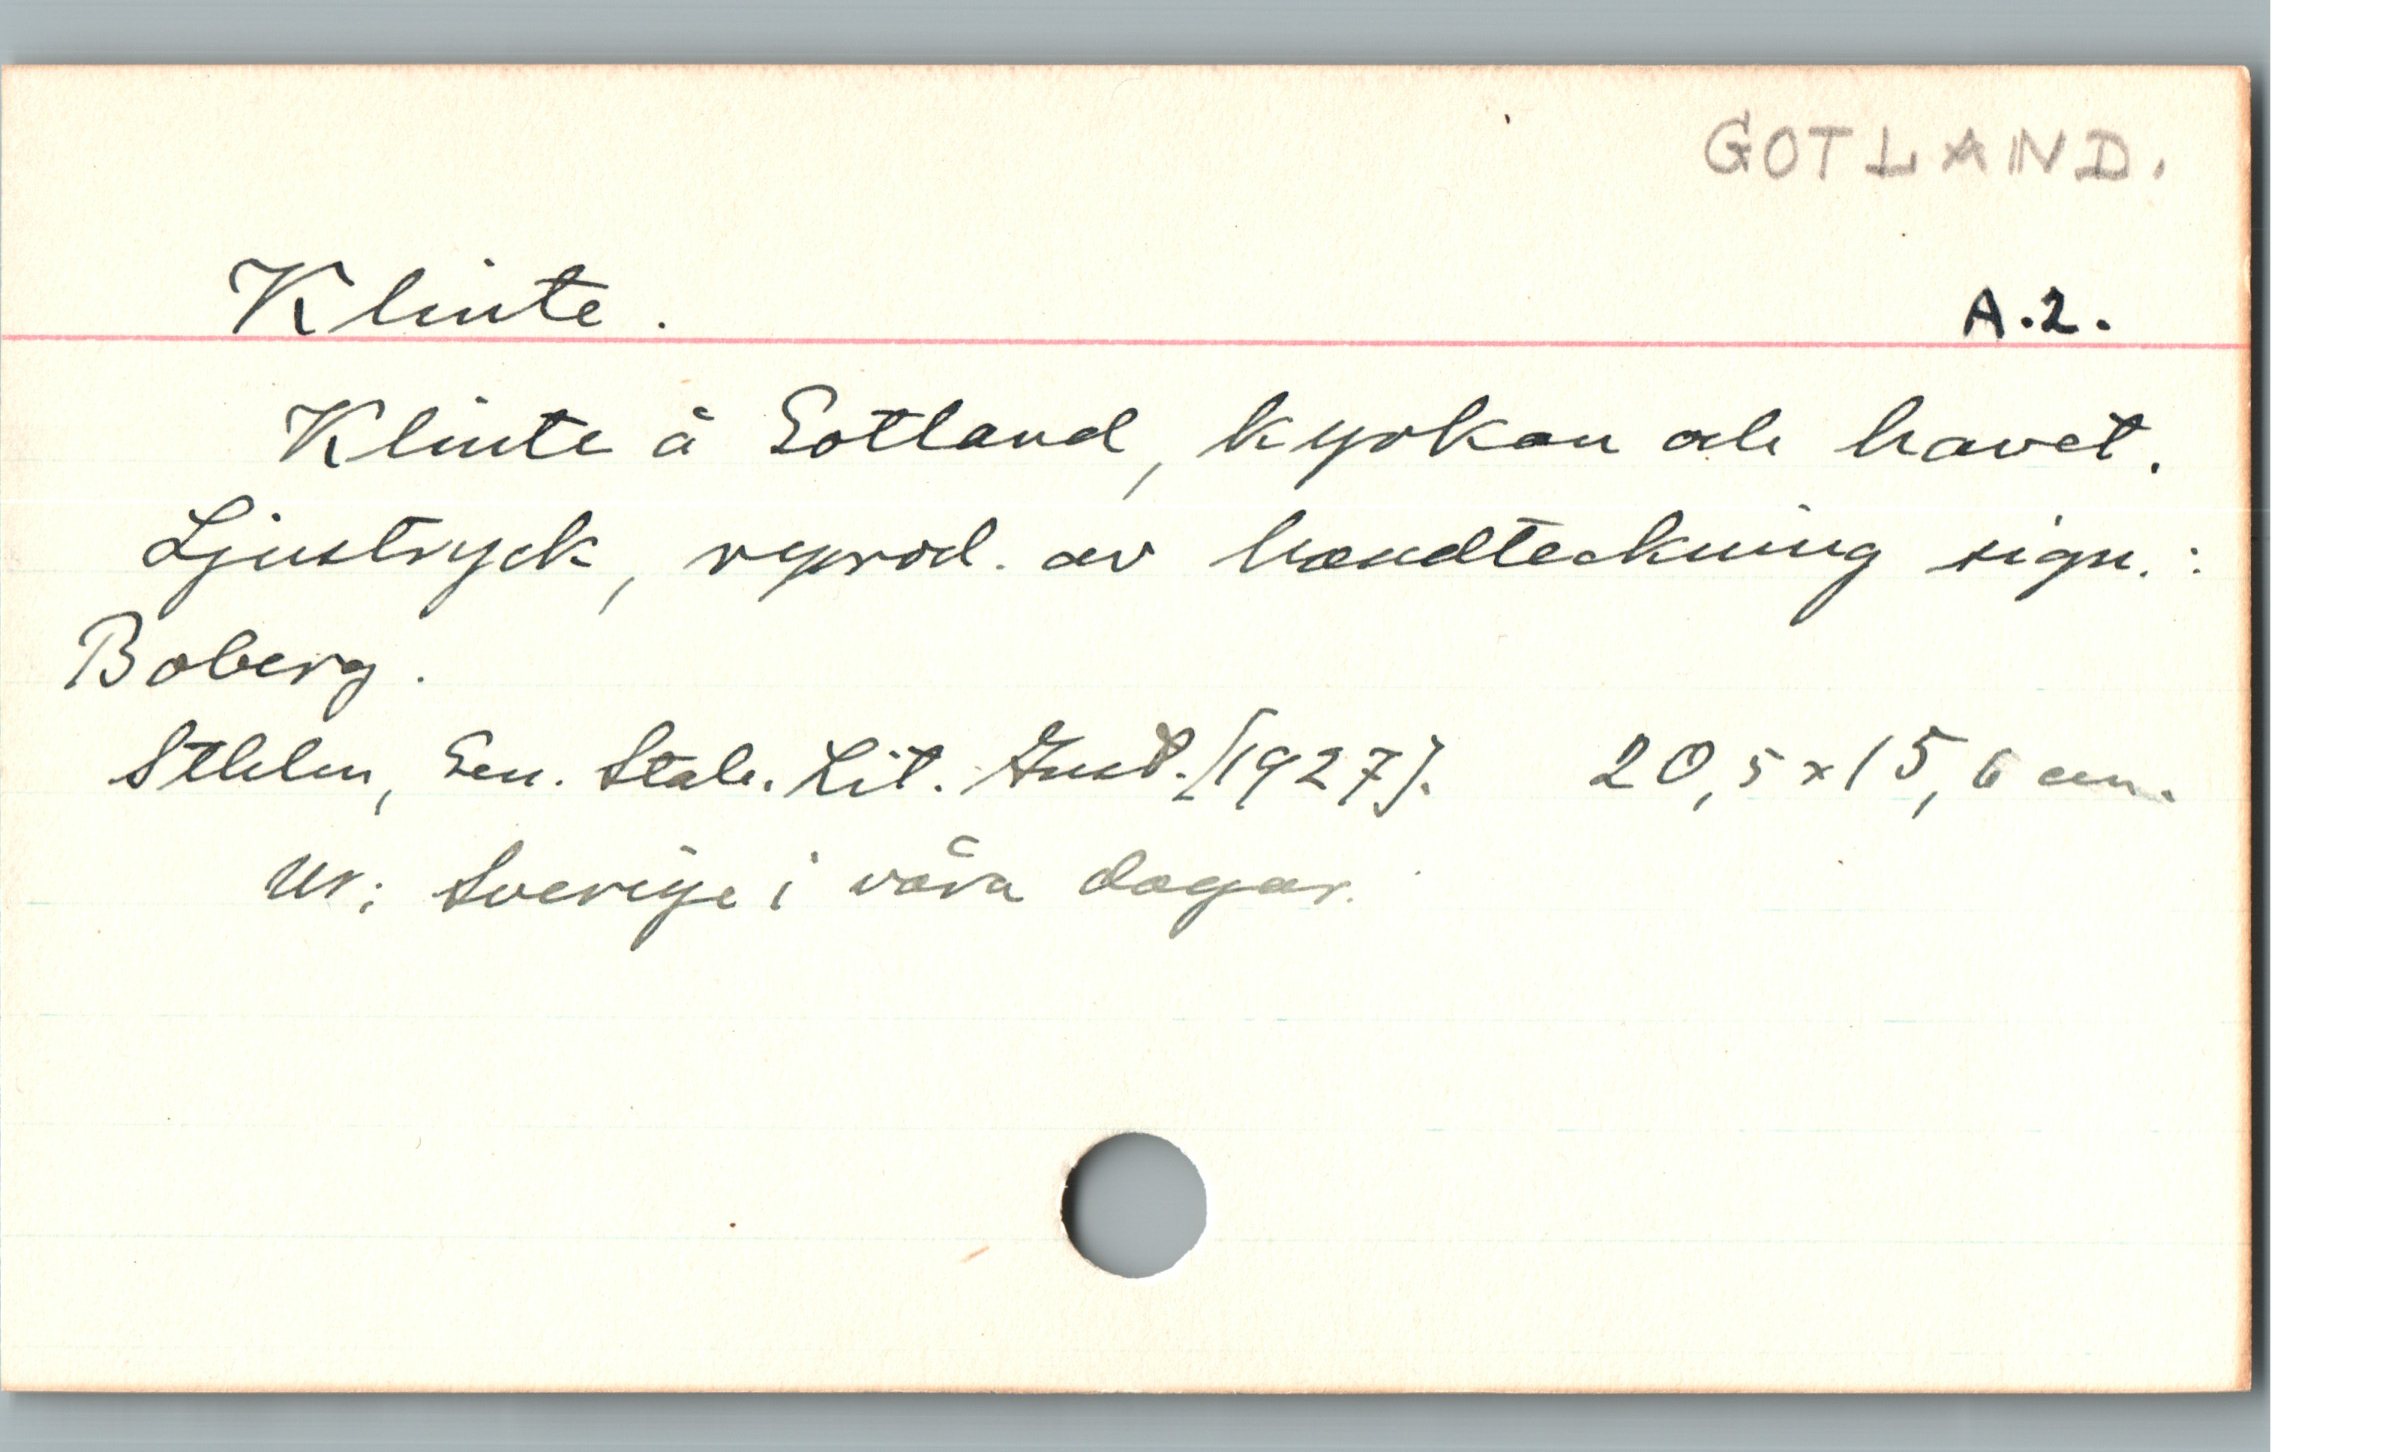 GOTLAND.
Klinte. A.2.
Klinte å Gotland, kyrkan och havet.
Ljustryck, reprod. av handteckning sign.:
Boberg.
Sthlm, Gen. Stab. Lit. Inst. [1927]. 20,5 x 15,6 cm.
Ur: Sverige i våra dagar.